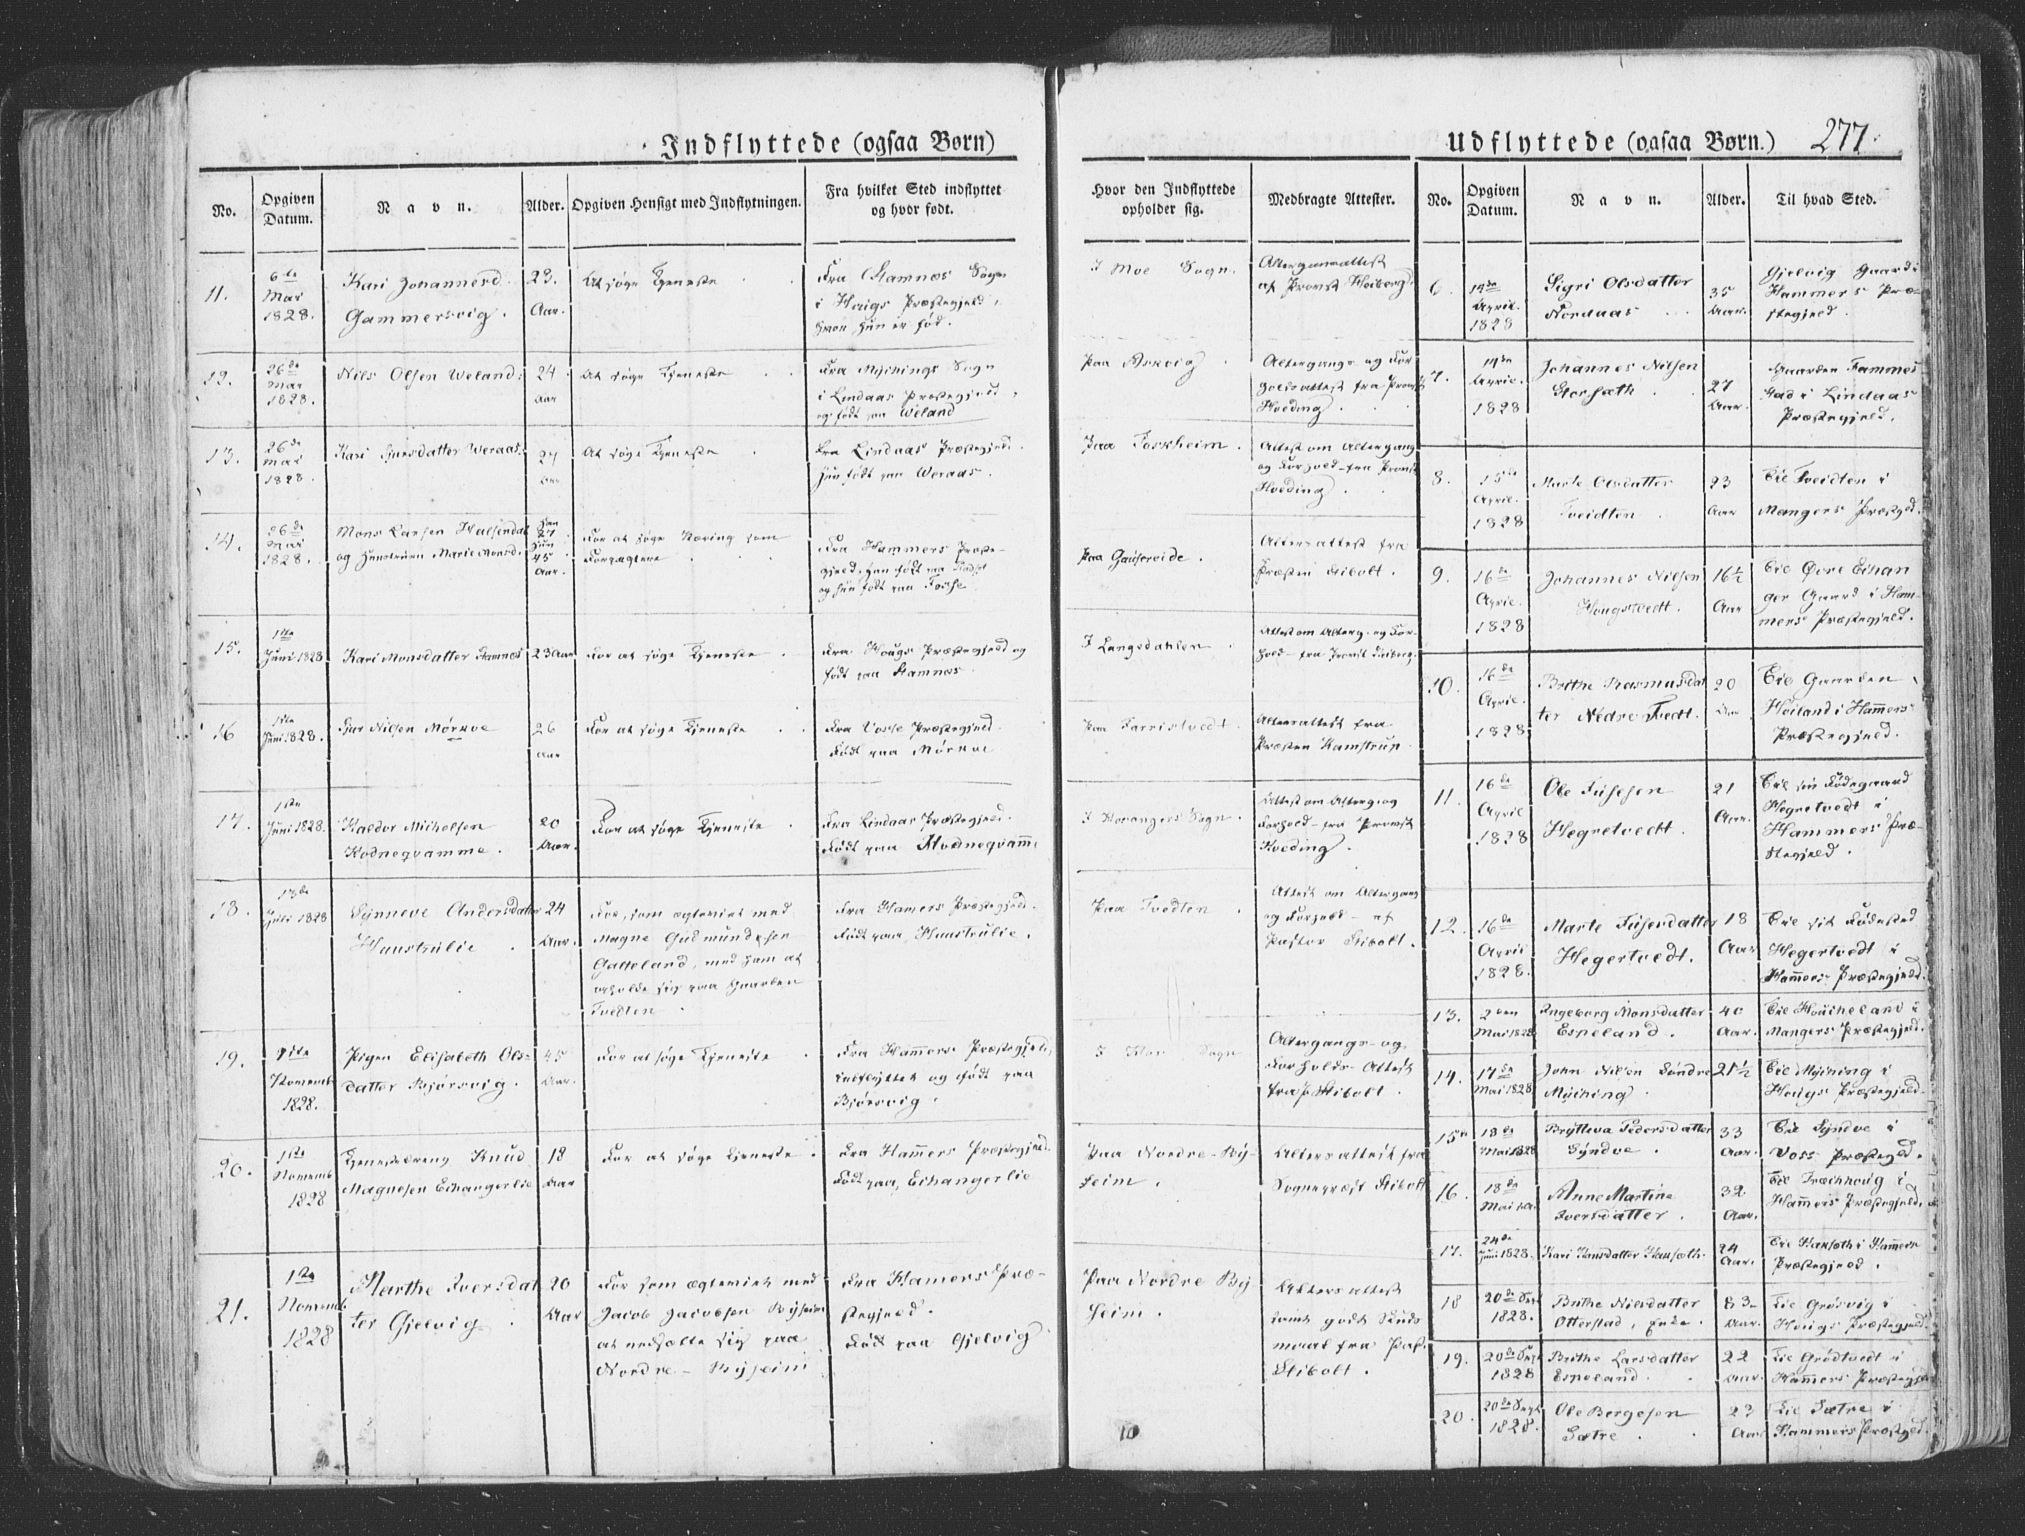 Indflyttede (ogsaa Børn)
No.
Opgiven Datum.
Navn.
Alder.
Opgiven Hensigt med Indflytningen.
Fra hvilket Sted indflyttet og hvor født.
Hvor den Indflyttede opholder sig.
Medbragte Attester.
11.
6te
Mai
1828.
Kari Johannesd.
Gammersvig.
23.
Aar.
At søge Tjeneste
Fra Stamnes Sogn
i Haugs Præstegjeld,
hvor hun er fød.
I Moe Sogn.
af Provst Heiberg.
12.
26de
Mai
1828.
Nils Olsen Weland.
24
Aar
At søge Tjeneste
Fra Myhings Sogn
i Lindaas Præstegjeld,
og født paa Weland
Altergangs og For-
holdsattest fra Provst
Hveding.
13.
26de
Mai
1828.
Kari Weraas.
Aar
At søge Tjeneste
Fra Lindaas Præstegjeld.
hun født paa Weraas.
Paa Foskheim.
Attest om Altergang
og Forhold fra Provst
Hveding.
14.
26de
Mai
1828.
Mons Larsen
og Hustruen Marie Monsd.
han
27
hun
45
Aar.
For at søge Næring som
Fra Hammers Præste-
gjeld, han født paa
og hun født paa Fosse
paa
Altersattest fra
Præsten Stibolt.
15.
1ste
Juni 1828
Kari Monsdatter Stamnes
23 Aar
For at søge Tjeneste
Fra Hougs Præstegjeld og
født paa Stamnes
I Langedahlen
Attest om Alterg. og For-
hold fra Provst Heiberg.
16
1ste
Juni 1828.
Nilsen Mørkve
26
Aar
For at søge Tjeneste
Fra Vosse Præstegjeld.
Født paa Mørkve
Paa Farristvedt.
Altersattest fra
Præsten Kamstrup.
17.
1ste
Juni 1828.
Haldor Michelsen
Kodneqvamme.
20
Aar.
For at søge Tjeneste.
Fra Lindaas Præstegjeld.
Født paa
Attest om Alterg. og
Forhold fra Provst
Hveding.
18.
13de
Juli 1828
Synneve Andersdatter
Haustrulie
24
Aar.
For, som ægteviet med
Magne Gudmundsen
Gatteland, med ham at
opholde sig paa Gaarden
Tvedten
Fra Hamers Præstegjeld.
Født paa Haustrulie.
Paa Tvedten
Attest om Altergang
og Forhold af
Pastor Stibolt.
19.
1ste
Novemb.
1828.
Pigen Elisabeth Ols-
datter Bjørsvig.
45
Aar.
For at søge Tjeneste
Fra Hammers Præstegjeld,
indflyttet og født paa
Bjørsvig.
Altergangs- og
Forholds-Attest
fra P. Stibolt.
20.
1ste
Novemb.
1828
Tjenestedreng Knud
Magnesen Echangerlie
18
Aar
For at søge Tjeneste.
Fra Hammers Præstegjeld.
Født paa, Echangerlie
Paa Nordre-By-
seim.
Altersattest fra
Sognepræst Stibolt
21.
1ste
Novemb.
1828
Marthe Iversdat-
ter Gjelvig
20
Aar
For som ægteviet med
Jacob Jacobsen Byseim
at nedsætte sig paa
Nordre-Byseim
Fra Hamers Præ-
stegjeld.
Født paa Gjelvig
Paa Nordre By
seim.
Altersattest
samt godt Skuds
maal fra Past.
Stibolt.
10
Udflyttede (ogsaa Børn.) 277.
No.
Opgiven Datum.
Navn.
Alder.
Til hvad Sted.
6.
14de
April.
1828
Sigri Olsdatter
Nordaas
35
Aar.
Gjelvig Gaard i
Hammers Præ-
stegjeld.
7.
14de
April.
1828
Johannes Nilsen
Storsæth
27
Aar.
Gaarden Fammes
tad i Lindaas
Præstegjeld.
8.
15de
April.
1828
Marte Olsdatter
Tveidten
23
Aar
Til Tveidten i
Mangers Præstegjeld.
9.
16de
April.
1828
Johannes Nilsen
Hougstvedt.
16½
Aar
Til Øvre Eikan
ger Gaard i Ham-
mers Præstegjeld.
10.
16de
April.
1828
Brithe Rasmusdat
ter Nedre Tvedt.
20
Aar
Til Gaarden
Høiland i Hamers
Præstegjeld.
11.
16de
April
1828
Ole Fusesen
Hegretvedt.
21
Aar.
Til sin Fødegaard
Hegretvedt i
Hammers Præ-
stegjeld.
12.
16de
April
1828.
Marte Fusesdatter
Hegertvedt.
18
Aar
Til sit Fødested
Hegertvedt i
Hamers Præstegjeld.
13.
2den
Mai 1828
Ingeborg Monsdatter
Espeland.
40
Aar.
Til i
Mangers Præstegjeld.
14.
17de
Mai 1828
John Nilsen Søndre
Myching.
21½
Til Myching i
Hougs Præstegjeld.
15.
18de
Mai 1828
Brytteva Pedersdatter
Syndve.
33
Aar.
Til Syndve i
Voss Præstegjeld.
16.
18de
Mai
Anne Martine
Iversdatter.
32
Aar.
Til i
Hamers Præstegjeld.
17.
24de
Juni 1828.
Kari Hansdatter Hanseth.
24
Aar.
Til Hanseth i Hamers
Præstegjeld.
18
20de Sept
1828.
Brithe Nielsdatter
Otterstad, Enke.
Aar.
Til i
Hougs Præstegjeld.
19.
20de Sept
1828
Brithe Larsdatter
Espeland.
22
Aar.
Til Grødtvedt i
Hamers Præstegjeld
20.
20de Sept
1828.
Ole Bergesen
Sætre.
23
Aar
Til Sætre i
Hammers Præstegjeld.